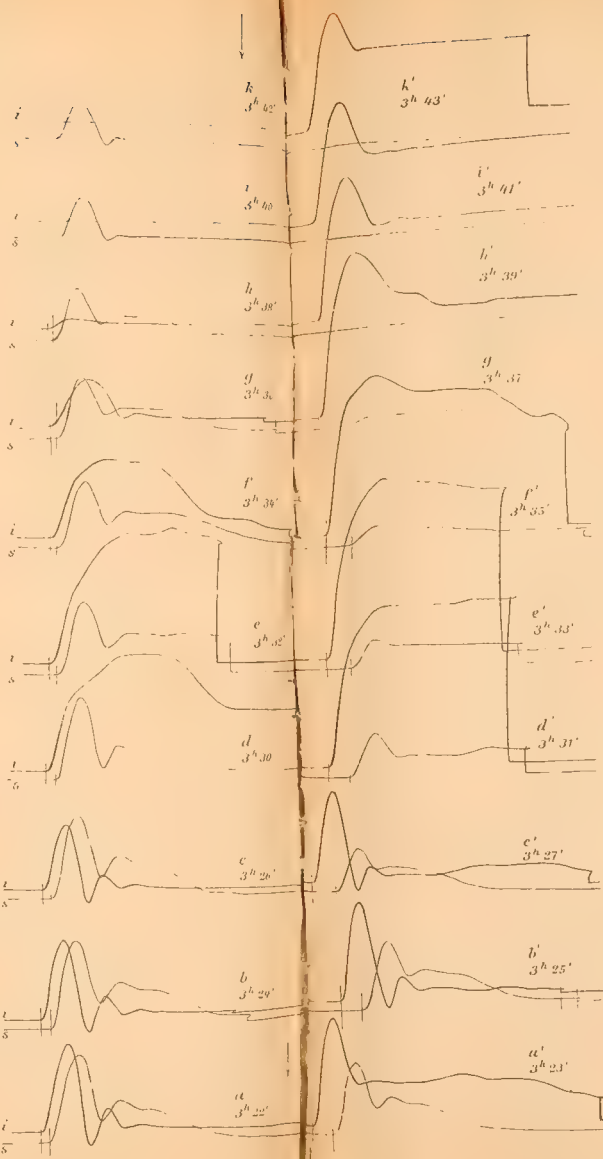 k
3ʰ 42'
k'
3ʰ 43'
i
s
i
3ʰ 40'
i'
3ʰ 41'
i
s
h
3ʰ 38'
h'
3ʰ 39'
i
s
g
3ʰ 36
g
3ʰ 37
i
s
f'
3ʰ 34'
f'
3ʰ 35'
i
s
e
3ʰ 32'
e'
3ʰ 33'
i
s
d
3ʰ 30
d'
3ʰ 31'
i
s
c
3ʰ 26'
c'
3ʰ 27'
i
s
b
3ʰ 24'
b'
3ʰ 25'
i
s
a
3ʰ 22'
a'
3ʰ 23'
i
s